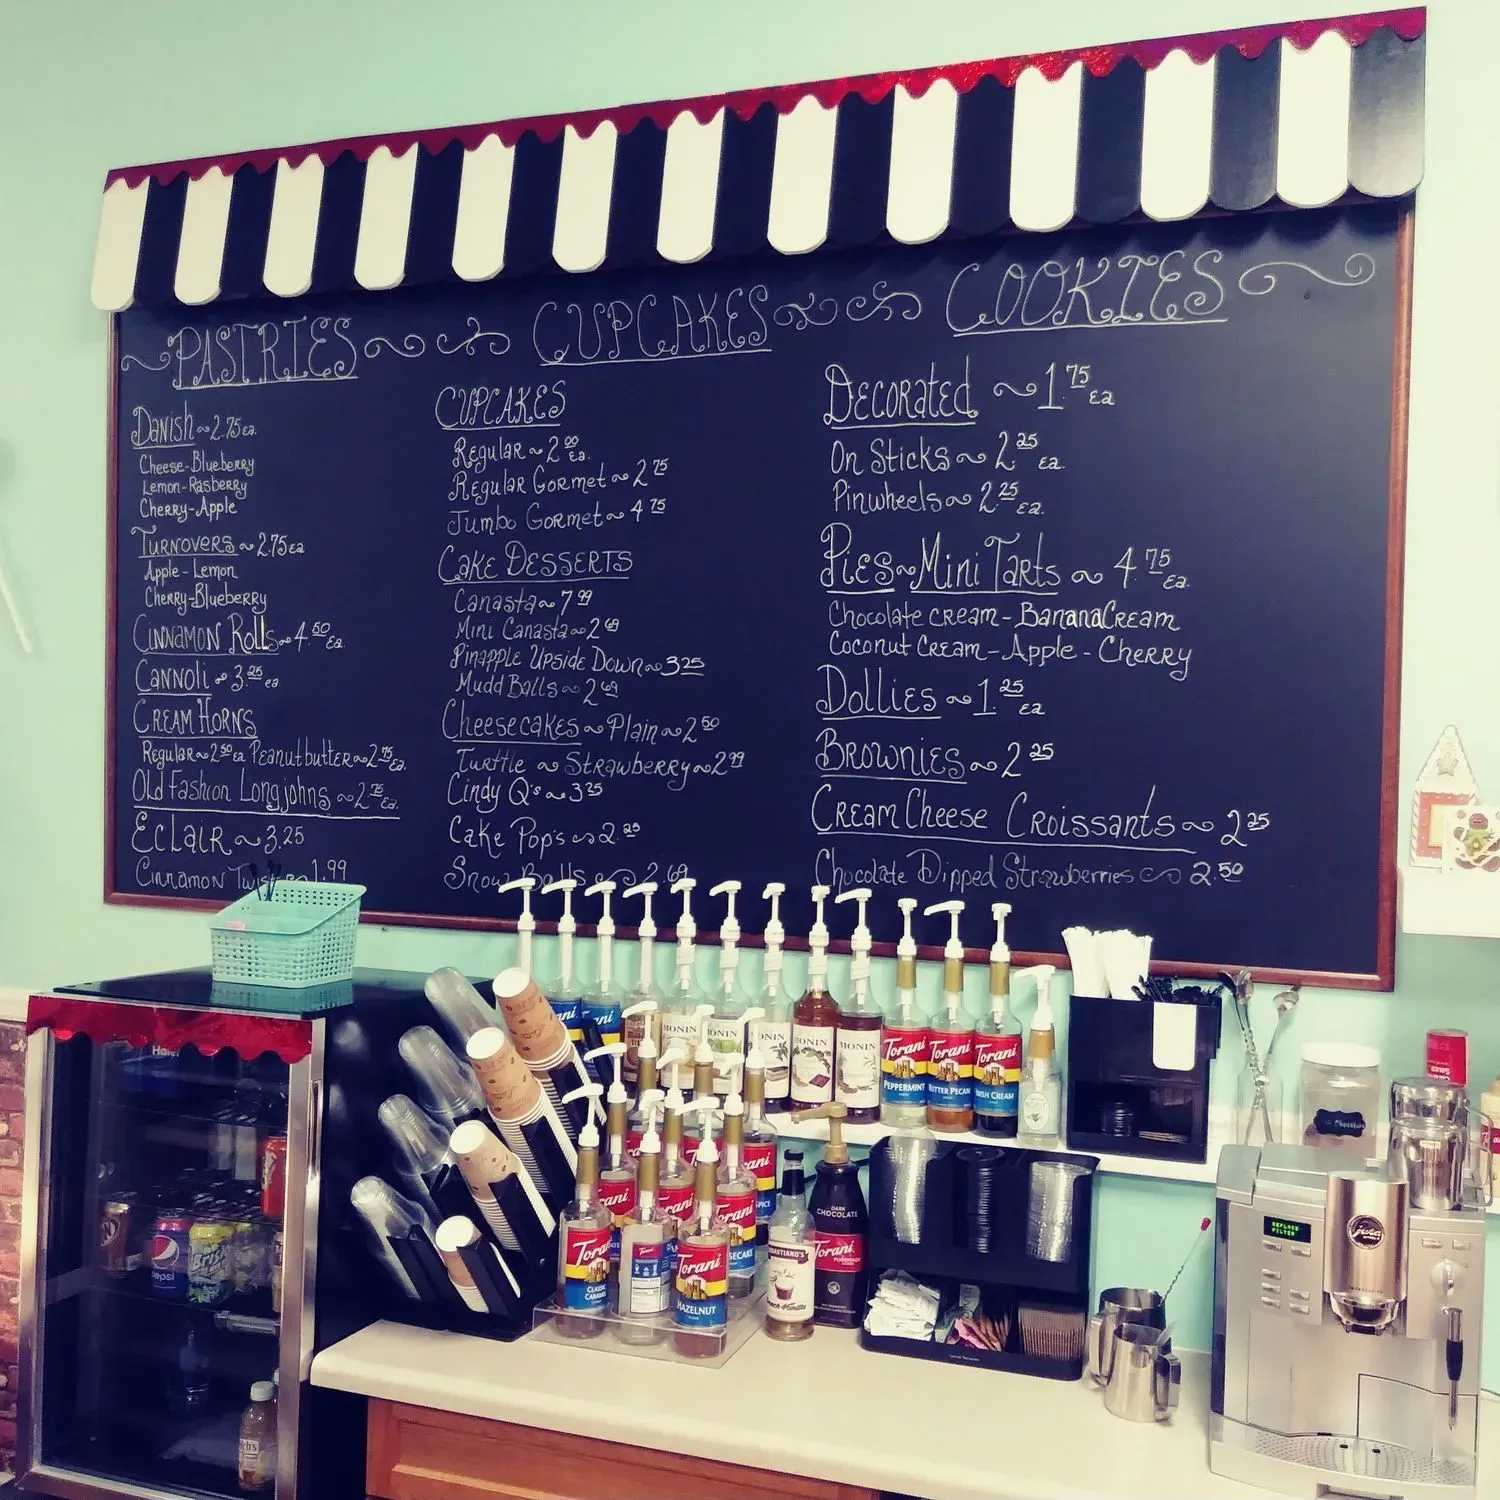 PASTRIES
Danish ~ 2.75 ea.
Cheese-Blueberry
Lemon-Rasberry
Cherry-Apple
Turnovers ~ 2.75 ea
Apple - Lemon
Cherry-Blueberry
Cinnamon Rolls ~ 4.50 Ea.
Cannoli ~ 3.25 ea
Cream Horns
Regular ~ 2.50 Ea Peanutbutter ~ 2.75 Ea.
Old Fashion Longjohns ~ 2.75 Ea.
Eclair ~ 3.25
Cinnamon 1.99
CUPCAKES
CUPCAKES
Regular ~ 2.00 Ea.
Regular Gormet ~ 2.75
Jumbo Gormet ~ 4.75
Cake Desserts
Canasta ~ 7.99
Mini Canasta ~ 2.69
Pinapple Upside Down ~ 3.25
Mudd Balls ~ 2.69
Cheesecakes ~ Plain ~ 2.50
Turttle ~ Strawberry ~ 2.99
Cindy Q's ~ 3.25
Cake Pop's ~ 2.25
Snow Balls ~ 2.69
COOKIES
Decorated ~ 1.75 Ea
On Sticks ~ 2.25 Ea.
Pinwheels ~ 2.25 Ea.
Pies ~ Mini Tarts ~ 4.75 Ea.
Chocolate cream - Banana Cream
Coconut Cream - Apple - Cherry
Dollies ~ 1.25 Ea
Brownies ~ 2.25
Cream Cheese Croissants ~ 2.25
Chocolate Dipped Strawberries ~ 2.50
MONIN
MONIN
MONIN
Torani
PEPPERMINT
Torani
BUTTER PECAN
Torani
IRISH CREAM
Torani
CLASSIC CARAMEL
Torani
HAZELNUT
DARK CHOCOLATE
Torani
pepsi
REPLACE
FILTER
jura